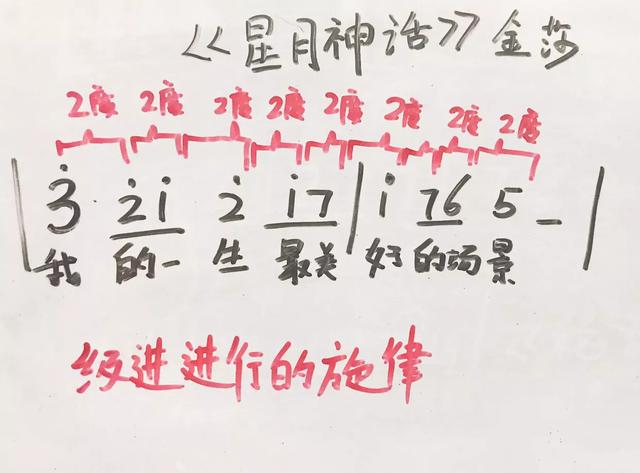 《星月神话》金莎
2度 2度 2度 2度 2度 2度 2度 2度
| 3̇ 2̇1̇ 2̇ 1̇7 | 1̇ 76 5 – |
我 的一 生 最美 好的场景
级进进行的旋律